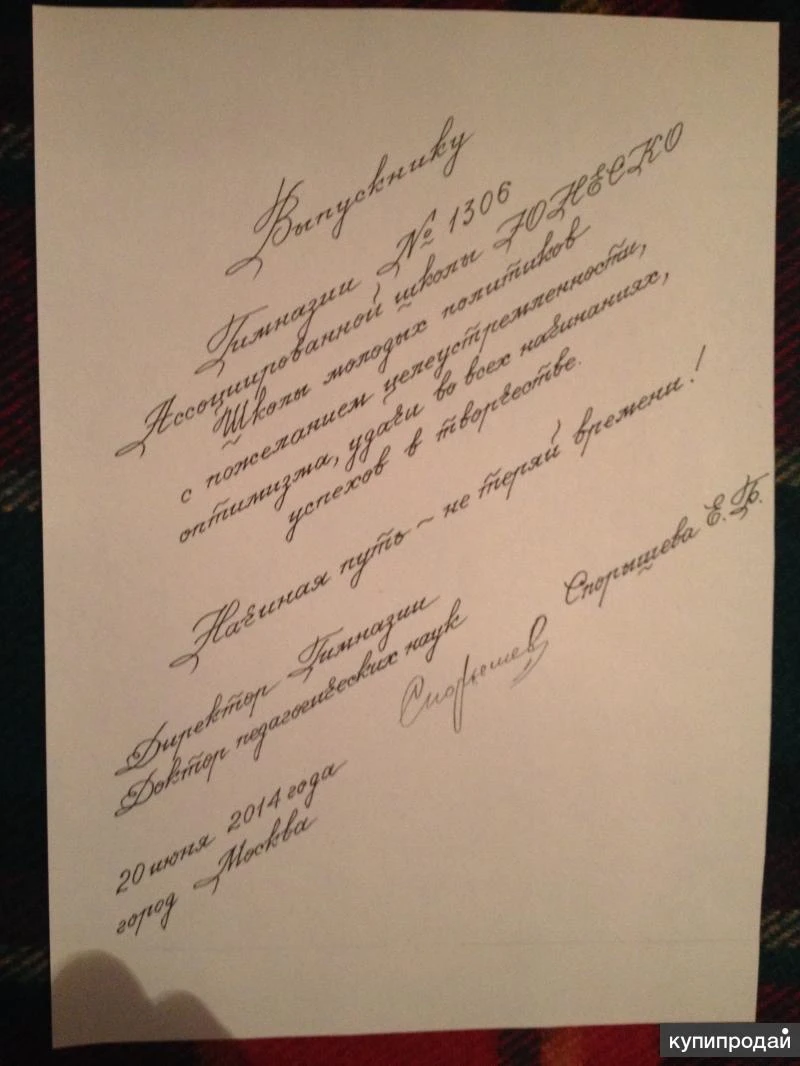 Выпускнику
Гимназии № 1306
Ассоциированной школы ЮНЕСКО
Школы молодых политиков
с пожеланием целеустремленности,
оптимизма, удачи во всех начинаниях,
успехов в творчестве.
Начиная путь – не теряй времени!
Директор Гимназии
Доктор педагогических наук
Спорышев
Спорышева Е.Б.
20 июня 2014 года
город Москва
купипродай